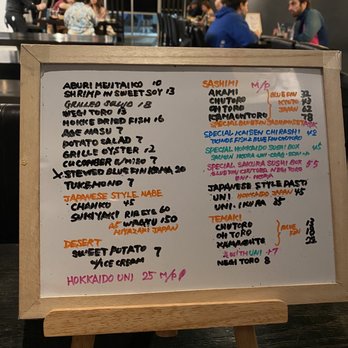 ABURI MENTAIKO 10
SHRIMP IN SWEET SOY 13
GRILLED SQUID 18
NEGITORO 13
HOKKE DRIED FISH 16
AGE NASU 7
POTATO SALAD 7
GRILLE OYSTER 12
CUCUMBER
STEWED BLUEFIN KAMA 20
TUKEMONO 7
JAPANESE STYLE NABE
CHANKO 45
SUKIYAKI RIB EYE 60
A5 WAGYU 150
MIYAZAKI JAPAN
DESERT
SWEET POTATO 7
W/ICE CREAM
HOKKAIDO UNI 25 M/P
SASHIMI M/P
AKAMI 32
CHUTORO 52
OH TORO 62
KAMAHOHO 78
BLUEFIN
JAPAN
SPECIAL BLUEFIN SASHIMI
SPECIAL KAISEN CHIRASHI 45
SPECIAL HOKKAIDO SUSHI BOX 45
SPECIAL SAKURA SUSHI BOX 55
BLUEFIN CHUTORO NEGITORO
JAPANESE STYLE PASTA
UNI HOKKAIDO JAPAN 45
UNI IKURA 35
TEMAKI
CHUTORO 13
OH TORO 18
KAMAHOHO 22
BLUE FIN
WITH UNI +7
NEGITORO 8